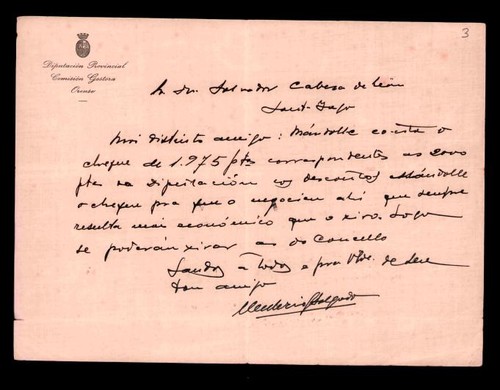 3
Diputación Provincial
Comisión Gestora
Orense
Sr. Dn. Salvador Cabeza de León
Sant-Yago
Moi distinto amigo: Mándolle coista o
cheque de 1.975 ptas correspondentes as 2000
ptas na Diputación cos descontos. Mándolle
o cheque pra que o negocien ahí que sempre
resulta mais económico que o xiro. Logo
se poderán xirar as do Concello
Saúdos a todos e pra Vde. do seu
bon amigo